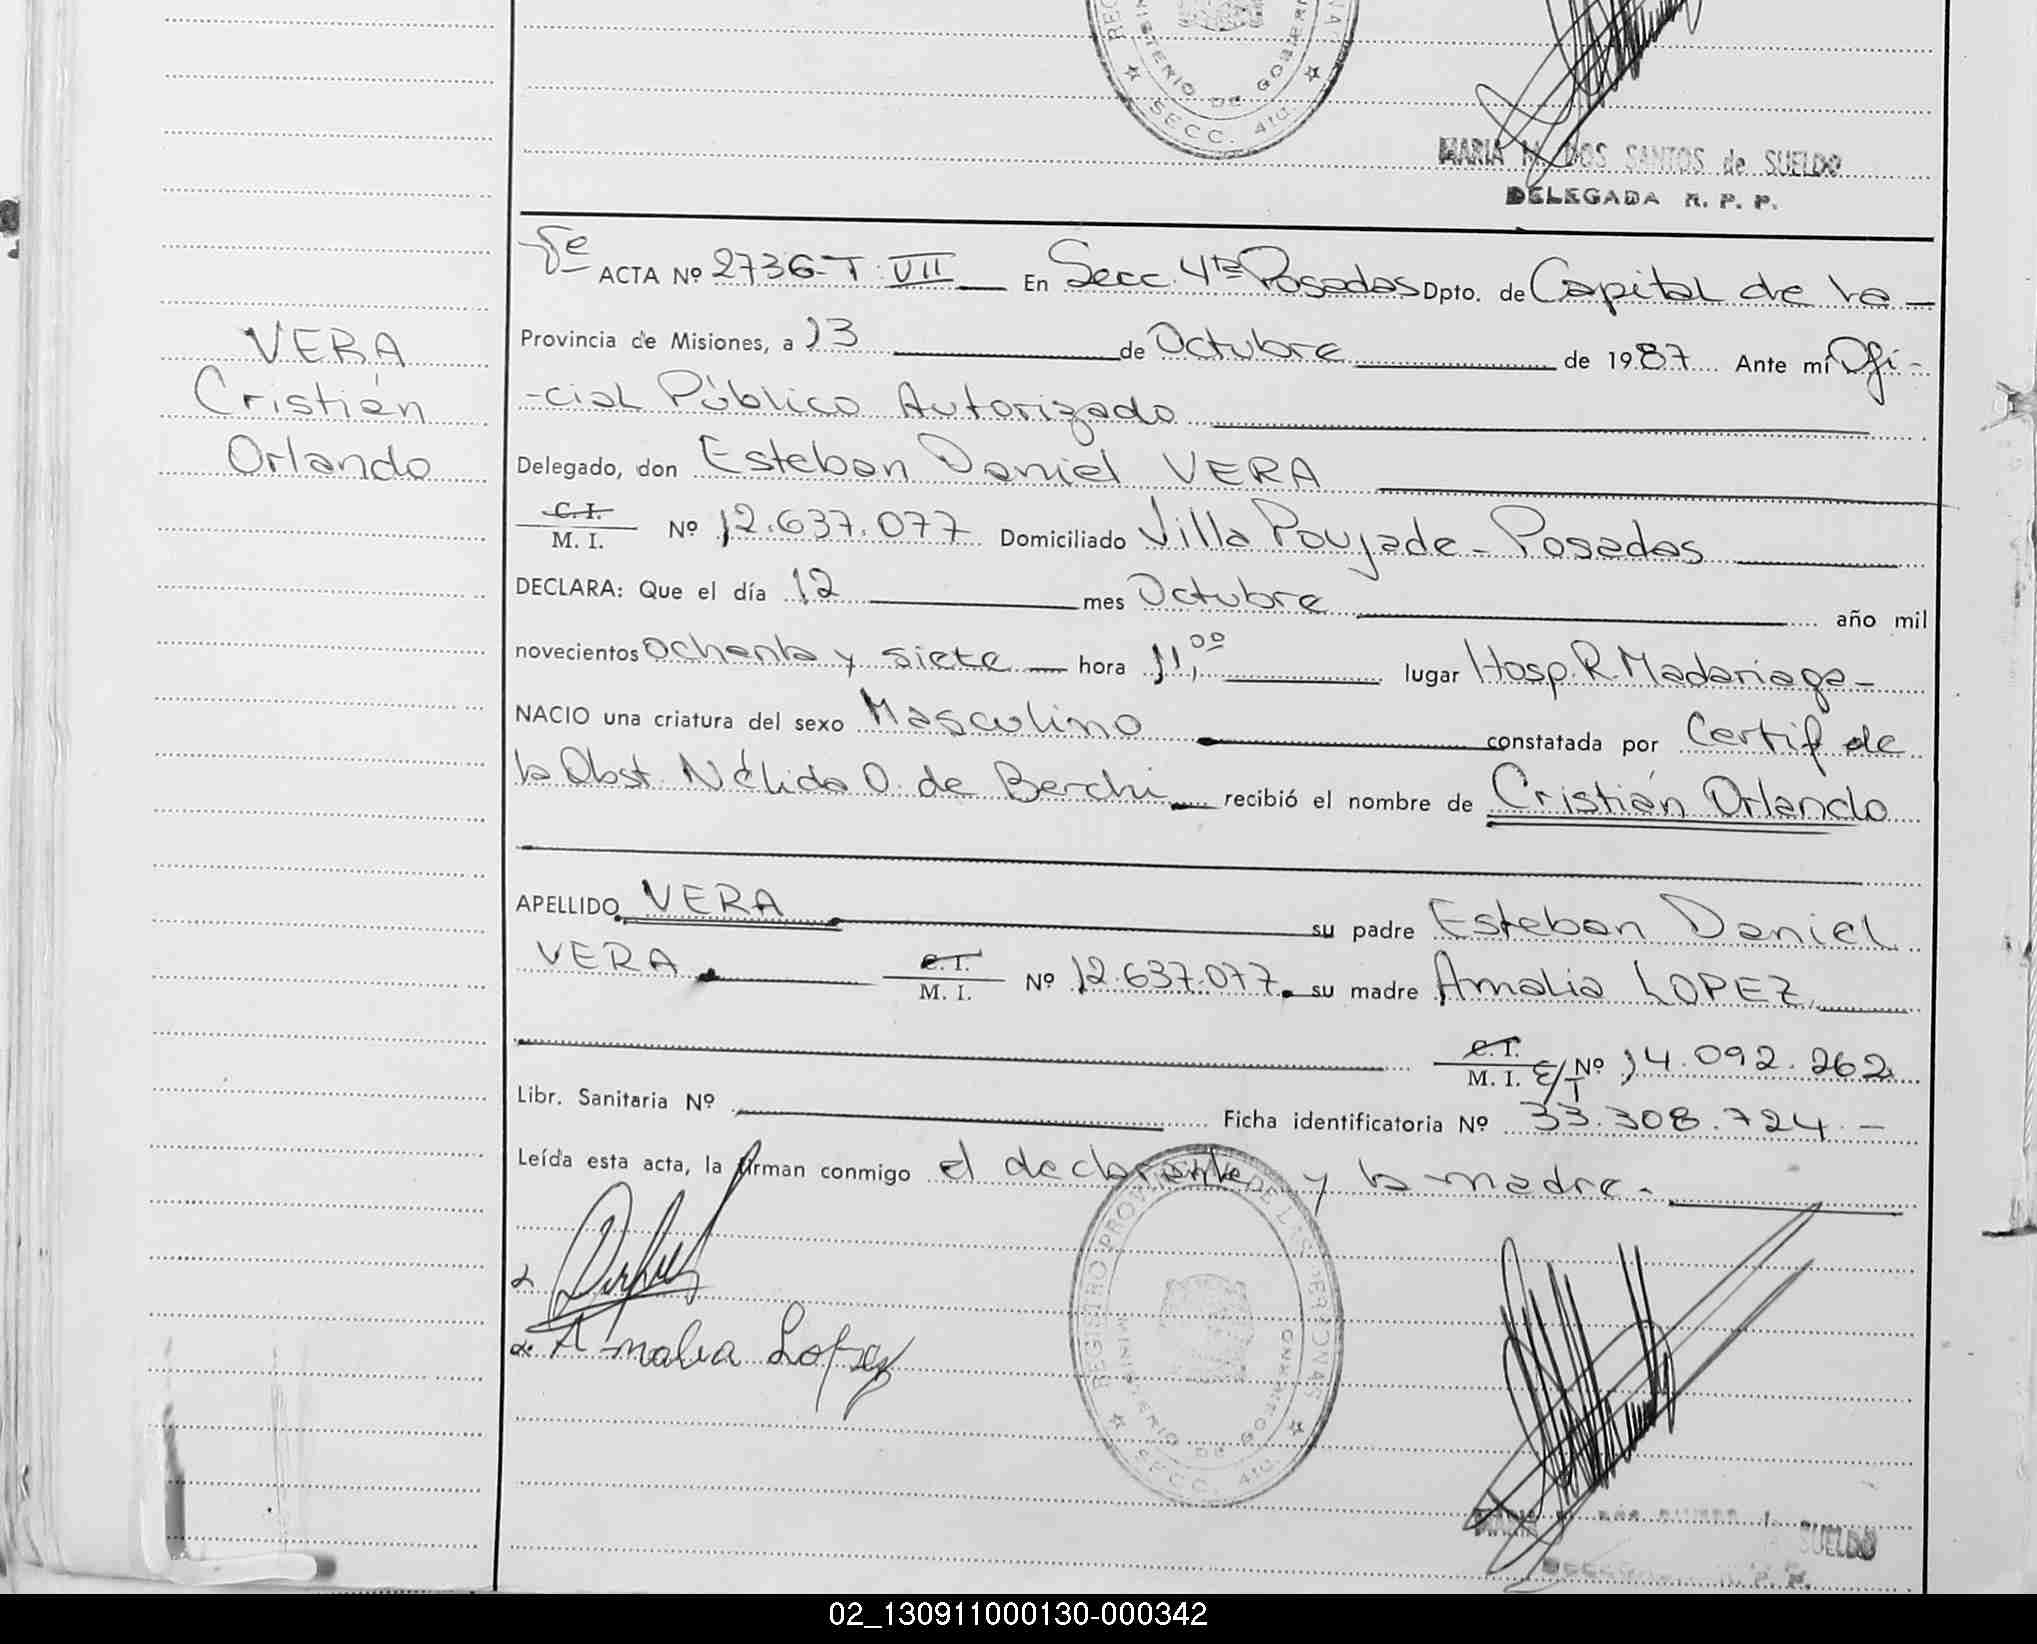 MARIA M. DOS SANTOS de SUELDO
DELEGADA R. P. P.
ACTA Nº 2736-T: VII En Secc. 4ta Posadas Dpto. de Capital de la
Provincia de Misiones, a 13 de Octubre de 1987 Ante mí Ofi-
-cial Público Autorizado
VERA
Cristián
Orlando
Delegado, don Esteban Daniel VERA
C. I.
M. I. Nº 12.637.077 Domiciliado Villa Poujade - Posadas
DECLARA: Que el día 12 mes Octubre año mil
novecientos ochenta y siete hora 11,00 lugar Hosp. R. Madariaga
NACIO una criatura del sexo Masculino constatada por Certif de
la Obst. Nélida O. de Berchi recibió el nombre de Cristián Orlando
APELLIDO VERA su padre Esteban Daniel
VERA C. I. M. I. Nº 12.637.077 su madre Amalia LOPEZ
C. I.
M. I. E/T Nº 14.092.262
Libr. Sanitaria Nº Ficha identificatoria Nº 33.308.724.-
Leída esta acta, la firman conmigo el declarante y la madre.-
REGISTRO PROVINCIAL DE LAS PERSONAS
MINISTERIO DE GOBIERNO
SECC. 4ta.
Amalia Lopez
MARIA SUELDO
02_130911000130-000342